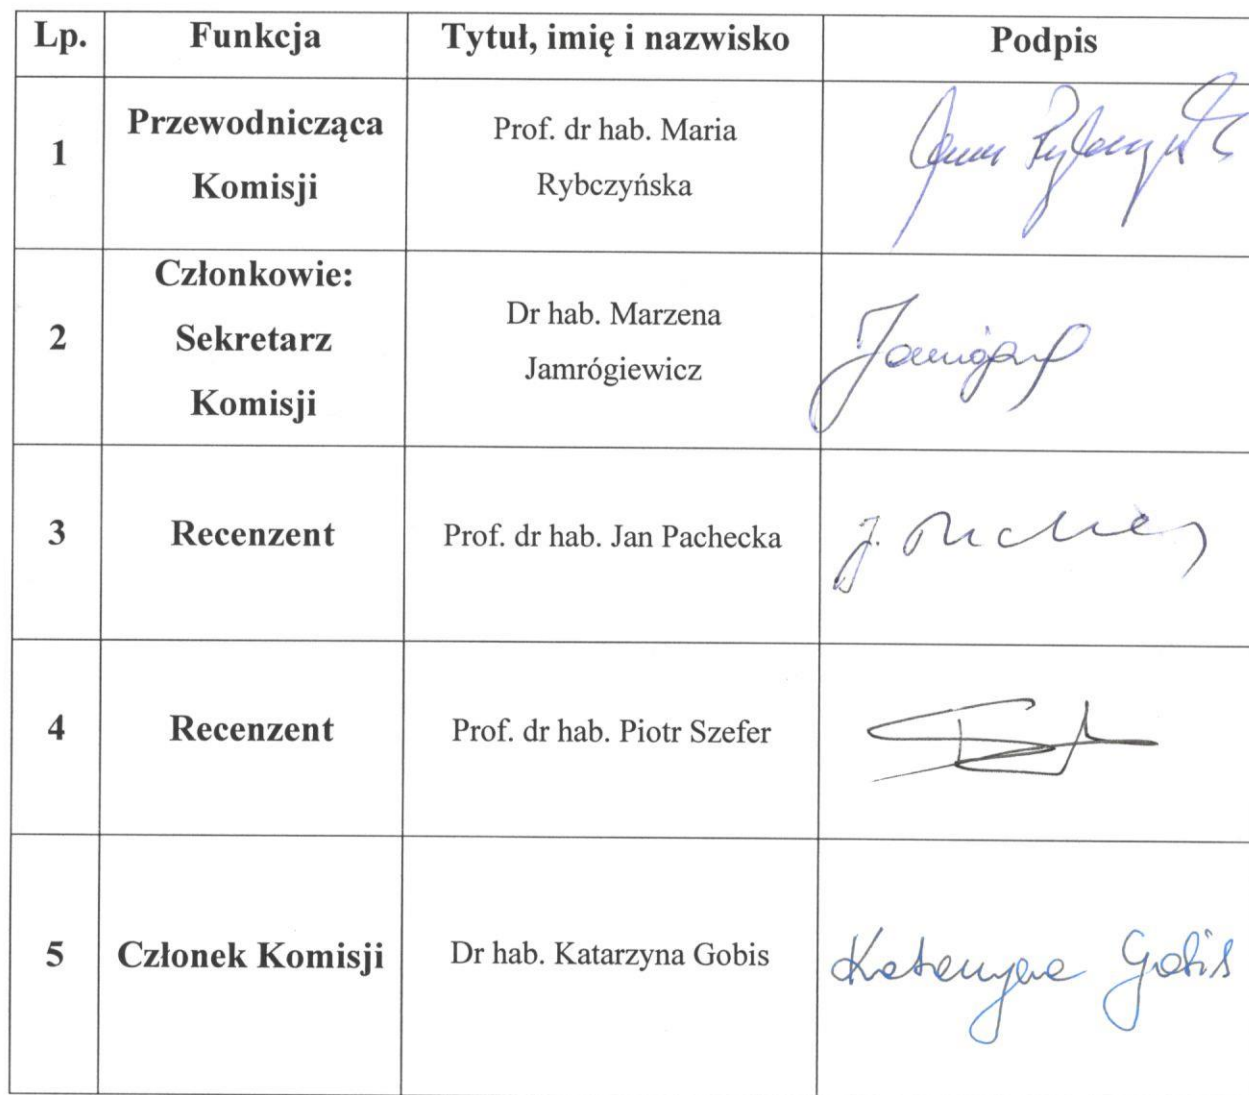 Lp. Funkcja Tytuł, imię i nazwisko Podpis
1 Przewodnicząca Komisji Prof. dr hab. Maria Rybczyńska
2 Członkowie: Sekretarz Komisji Dr hab. Marzena Jamrógiewicz
3 Recenzent Prof. dr hab. Jan Pachecka J.
4 Recenzent Prof. dr hab. Piotr Szefer
5 Członek Komisji Dr hab. Katarzyna Gobis Katarzyna Gobis